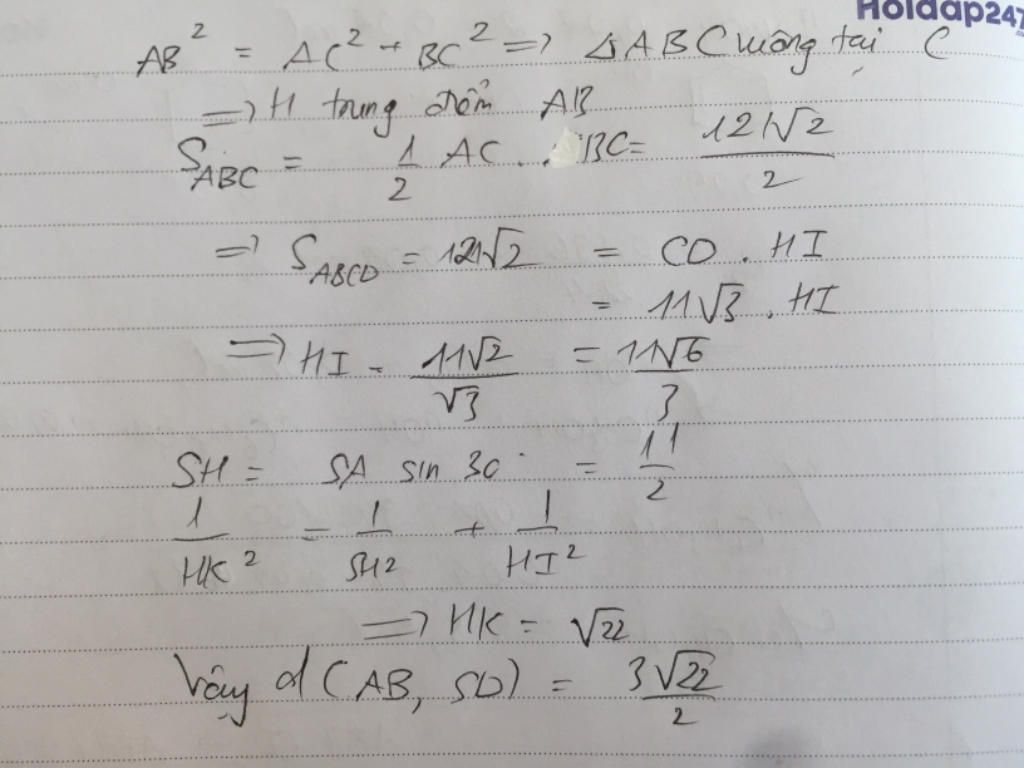 Hoidap247
AB² = AC² + BC² => △ABC vuông tại C
=> H trung điểm AB
S_ABC = 1/2 AC . BC = 121√2/2
=> S_ABCD = 121√2 = CD . HI
= 11√3 . HI
=> HI = 11√2/√3 = 11√6/3
SH = SA sin 30° = 11/2
1/HK² = 1/SH² + 1/HI²
=> HK = √22
Vậy d(AB, SD) = 3√22/2